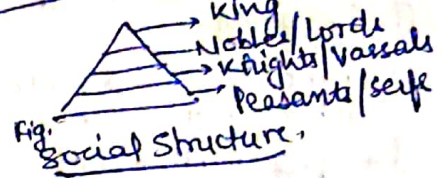 King
Nobles/Lords
Knights/Vassals
Peasants/Serfs
Fig.
Social Structure.